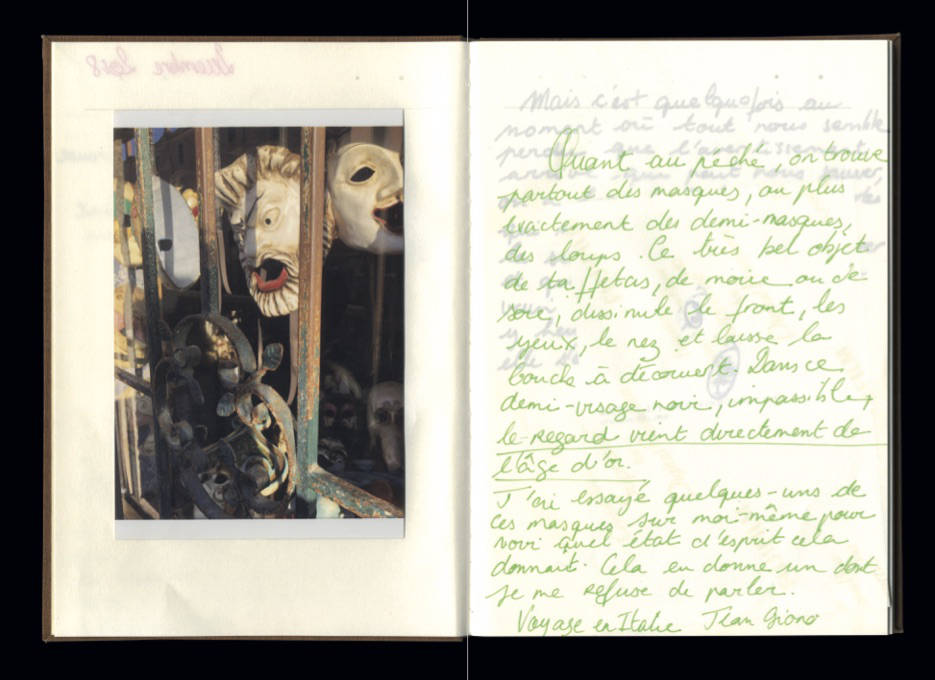 Décembre 2018
Mais c'est quelquefois au
moment où tout nous semble
perdu que l'avertissement
arrive qui peut nous sauver,
Quant au péché, on trouve
partout des masques, ou plus
exactement des demi-masques,
des loups. Ce très bel objet
de taffetas, de moire ou de
soie, dissimule le front, les
yeux, le nez et laisse la
bouche à découvert. Dans ce
demi-visage noir, impassible,
le regard vient directement de
l'âge d'or.
J'ai essayé quelques-uns de
ces masques sur moi-même pour
voir quel état d'esprit cela
donnait. Cela en donne un dont
je me refuse de parler.
Voyage en Italie Jean Giono